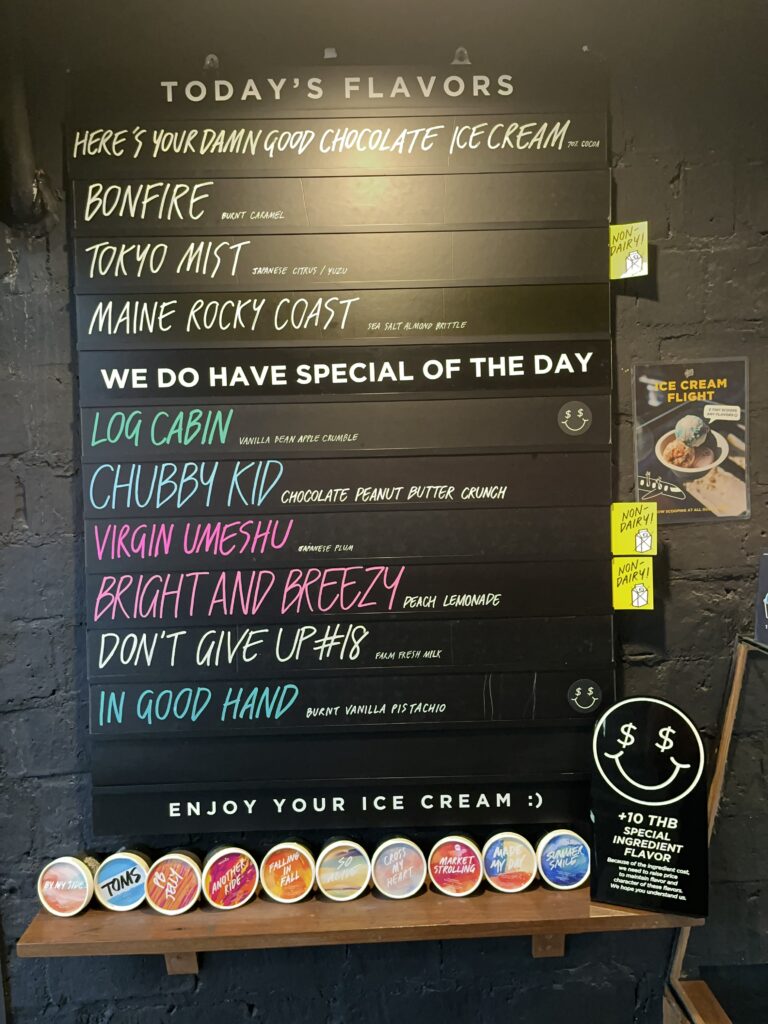 TODAY'S FLAVORS
HERE'S YOUR DAMN GOOD CHOCOLATE ICE CREAM 70% COCOA
BONFIRE BURNT CARAMEL
TOKYO MIST JAPANESE CITRUS / YUZU
NON-
DAIRY!
MAINE ROCKY COAST SEA SALT ALMOND BRITTLE
WE DO HAVE SPECIAL OF THE DAY
LOG CABIN VANILLA BEAN APPLE CRUMBLE
$ $
CHUBBY KID CHOCOLATE PEANUT BUTTER CRUNCH
VIRGIN UMESHU JAPANESE PLUM
NON-
DAIRY!
BRIGHT AND BREEZY PEACH LEMONADE
NON-
DAIRY!
DON'T GIVE UP #18 FARM FRESH MILK
IN GOOD HAND BURNT VANILLA PISTACHIO
$ $
ENJOY YOUR ICE CREAM :)
ICE CREAM
FLIGHT
ANY FLAVORS
NOW SCOOPING AT ALL
$ $
+10 THB
SPECIAL
INGREDIENT
FLAVOR
Because of the ingredient cost,
we need to raise price
to maintain flavor and
character of these flavors.
We hope you understand us.
BY MY SIDE
TOMS
PB
JELLY
ANOTHER
RIDE
FALLING
IN
FALL
SO
CROSS
MY
HEART
MARKET
STROLLING
MADE
MY DAY
SUMMER
SMILE